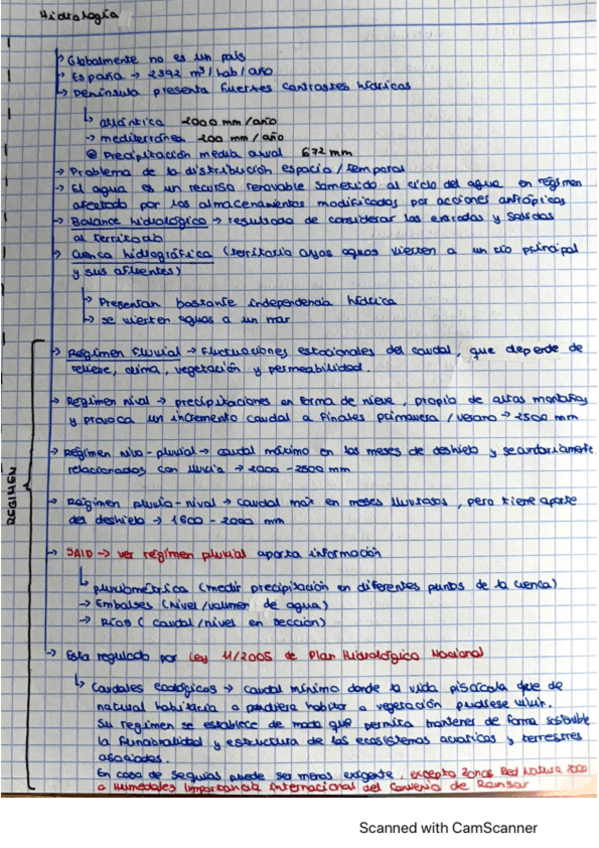 Hidrología
→ Globalmente no es un país
→ España → 2392 m³/hab/año
→ Península presenta fuertes contrastes hídricos
↳ atlántica 2000 mm/año
→ mediterránea 200 mm/año
@ Precipitación media anual 672 mm
→ Problema de la distribución espacio/temporal
→ El agua es un recurso renovable sometido al ciclo del agua en régimen
afectado por los almacenamientos modificados por acciones antrópicas
→ Balance hidrológico → resultado de considerar las entradas y salidas
al territorio
→ Cuenca hidrográfica (territorio cuyas aguas vierten a un río principal
y sus afluentes)
→ Presentan bastante independencia hídrica
↳ se vierten aguas a un mar
REGIMEN
→ Régimen fluvial → Fluctuaciones estacionales del caudal, que depende de
relieve, clima, vegetación y permeabilidad.
→ Régimen nival → precipitaciones en forma de nieve, propio de altas montañas
y provoca un incremento caudal a finales primavera/verano → 2500 mm
→ Régimen nivo-pluvial → caudal máximo en los meses de deshielo y secundariamente
relacionados con lluvia → 2000-2500 mm
→ Régimen pluvio-nival → caudal max en meses lluviosos, pero tiene aporte
del deshielo → 1600-2000 mm
→ SAID → ver régimen pluvial aporta información
↳ pluviométrica (medir precipitación en diferentes puntos de la cuenca)
→ Embalses (nivel/volumen de agua)
→ Ríos (caudal/nivel en sección)
→ Esta regulado por Ley 11/2005 de Plan Hidrológico Nacional
↳ Caudales ecológicos → caudal mínimo donde la vida piscícola que de
natural habitaría o pudiera habitar o vegetación pudiese vivir.
Su regimen se establece de modo que permita mantener de forma sostenible
la funcionalidad y estructura de los ecosistemas acuaticos y terrestres
asociados.
En caso de sequías puede ser menos exigente, excepto zonas Red Natura 2000
o Humedales Importancia Internacional del Convenio de Ramsar
Scanned with CamScanner